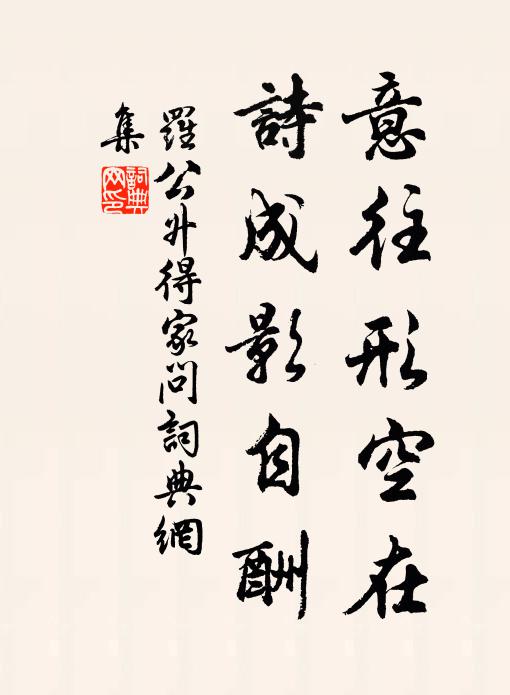 意往形空在
詩成影自酬
羅公升得家問詞典網
集
詞典网印